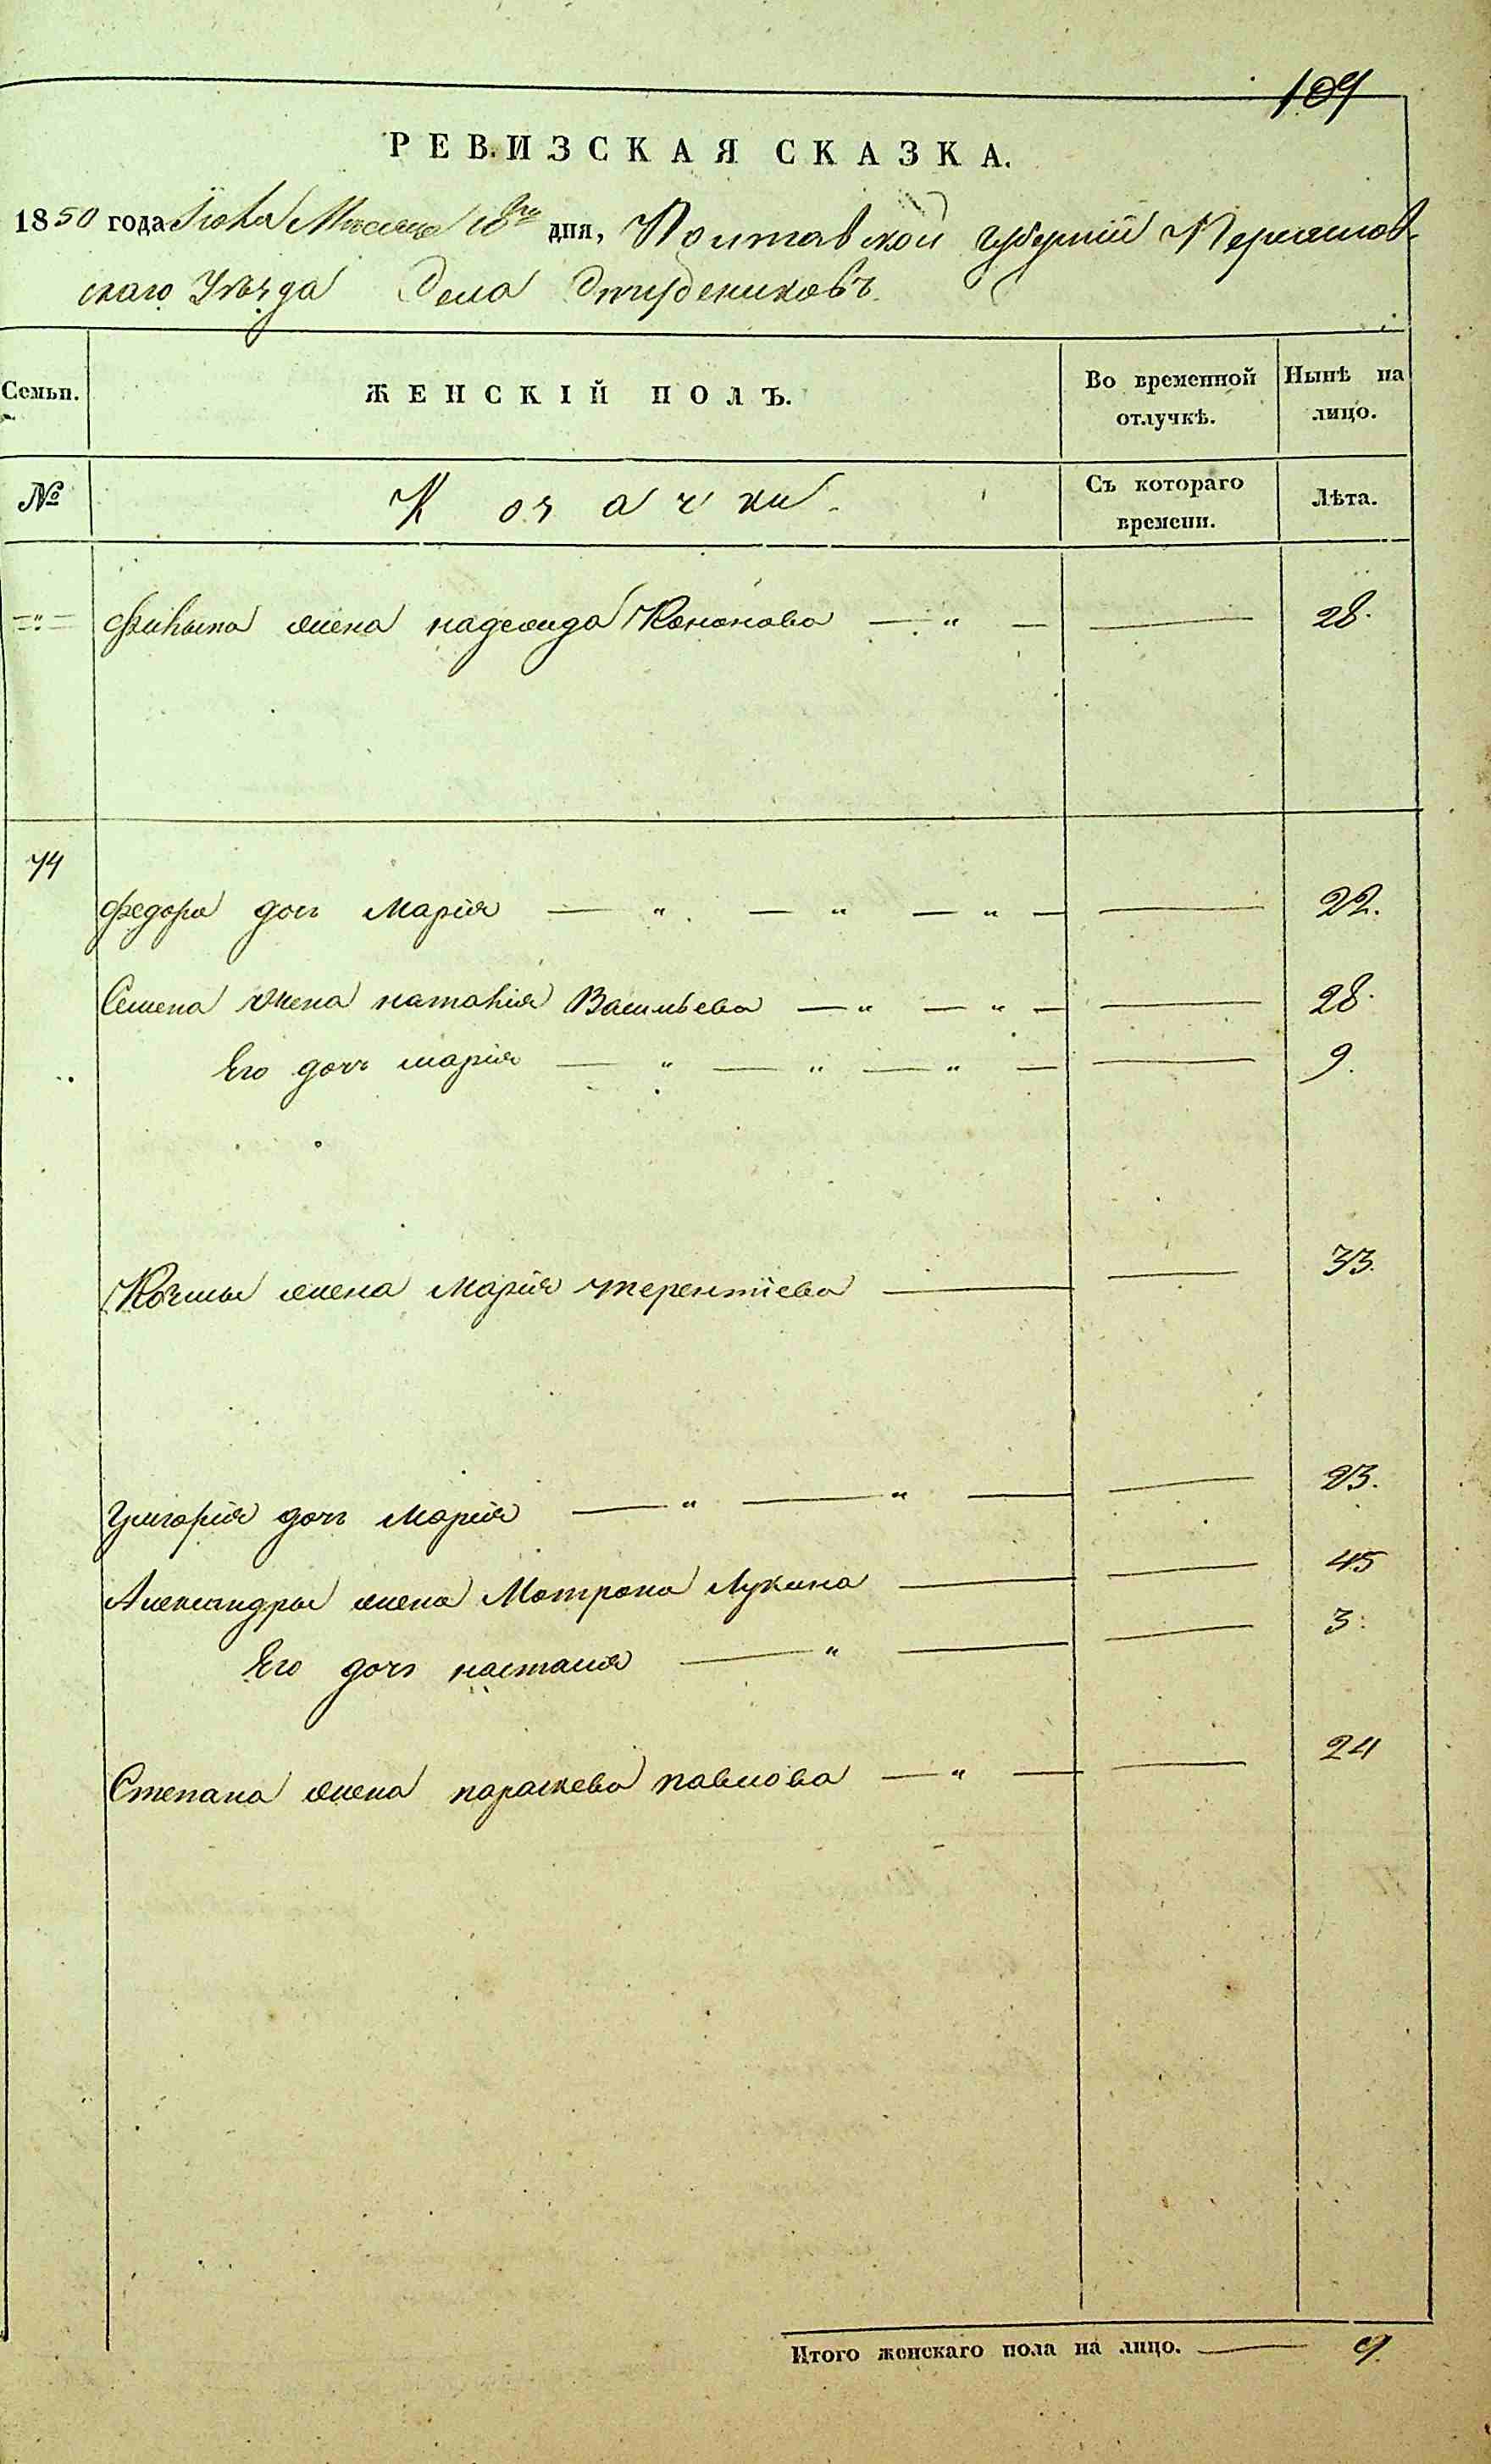 109
РЕВИЗСКАЯ СКАЗКА.
1850 года Июля Месяца 10го дня, Полтавской губернии Переяслов-
скаго Уѣзда Села Студениковъ.
Семьи. ЖЕНСКІЙ ПОЛЪ. Во временной отлучкѣ. Нынѣ на лицо.
№ Козачки. Съ котораго времени. Лѣта.
жена надежда Кононова — " — — 28.
74
Федора доч Марія — " — " — " — — 22.
Семена жена наталія Васильева — " — " — — 28.
Его дочь марія — " — " — " — — 9.
Козмы жена Марія терентіева — — 33.
Григорія дочь Марія — " — " — — 23.
Александры жена Мотрона Лукина — — 45
Его дочь настасія — " — — 3.
Степана жена параскева павлова — " — — 24
Итого женскаго пола на лицо. — 9.